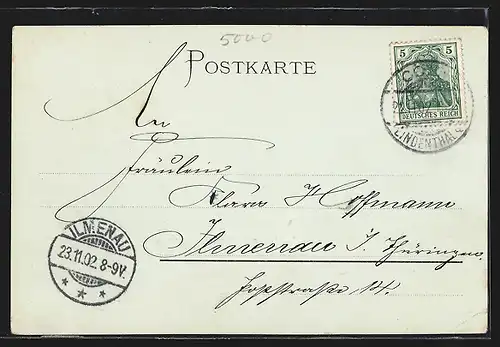 5000
POSTKARTE
5 5
DEUTSCHES REICH
CÖLN
LINDENTHAL
An
Fräulein
Klara Hoffmann
Ilmenau i. Thüringen.
Poststraße 14.
ILMENAU
23.11.02. 8-9V.
* * *